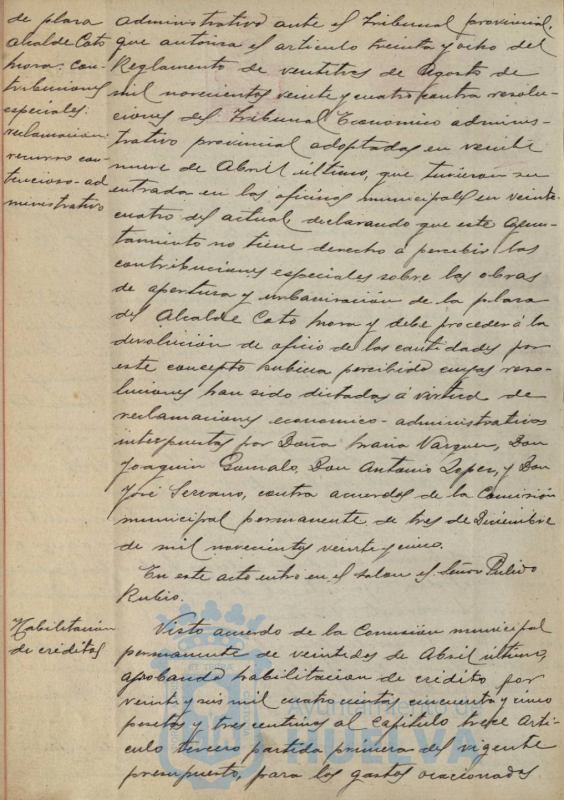 de plaza
Alcalde Coto
Mora: con-
tribuciones
especiales:
reclamacion:
recurso con-
tencioso-ad
ministrativo
administrativo ante el Tribunal provincial,
que autoriza el articulo treinta y ocho del
Reglamento de veintitres de Agosto de
mil novecientos veinte y cuatro contra resolu-
ciones del Tribunal Económico adminis-
trativo provincial adoptadas en veinte
nueve de Abril último, que tuvieron su
entrada en las oficinas municipales en veinte
cuatro del actual declarando que este Ayun-
tamiento no tiene derecho a percibir las
contribuciones especiales sobre las obras
de apertura y urbanización de la plaza
del Alcalde Coto Mora y debe proceder á la
devolución de oficio de las cantidades por
este concepto hubiera percibido cuyas reso-
luciones han sido dictadas á virtud de
reclamaciones economico-administrativas
interpuestas por Doña Maria Vazquez, Don
Joaquin Gonzalo, Don Antonio Lopez, y Don
José Serrano, contra acuerdos de la Comisión
municipal permanente de tres de Diciembre
de mil novecientos veinte y cinco.
En este acto entro en el salon el Señor Pulido
Rubio.
Habilitacion
de créditos
Visto acuerdo de la Comisión municipal
permanente de veintidos de Abril último,
aprobando habilitacion de crédito por
veinte y seis mil cuatrocientas cincuenta y cinco
pesetas y tres centimos al Capítulo trece Arti-
culo tercero partida primera del vigente
presupuesto, para los gastos ocacionados
Ayuntamiento de
HUELVA